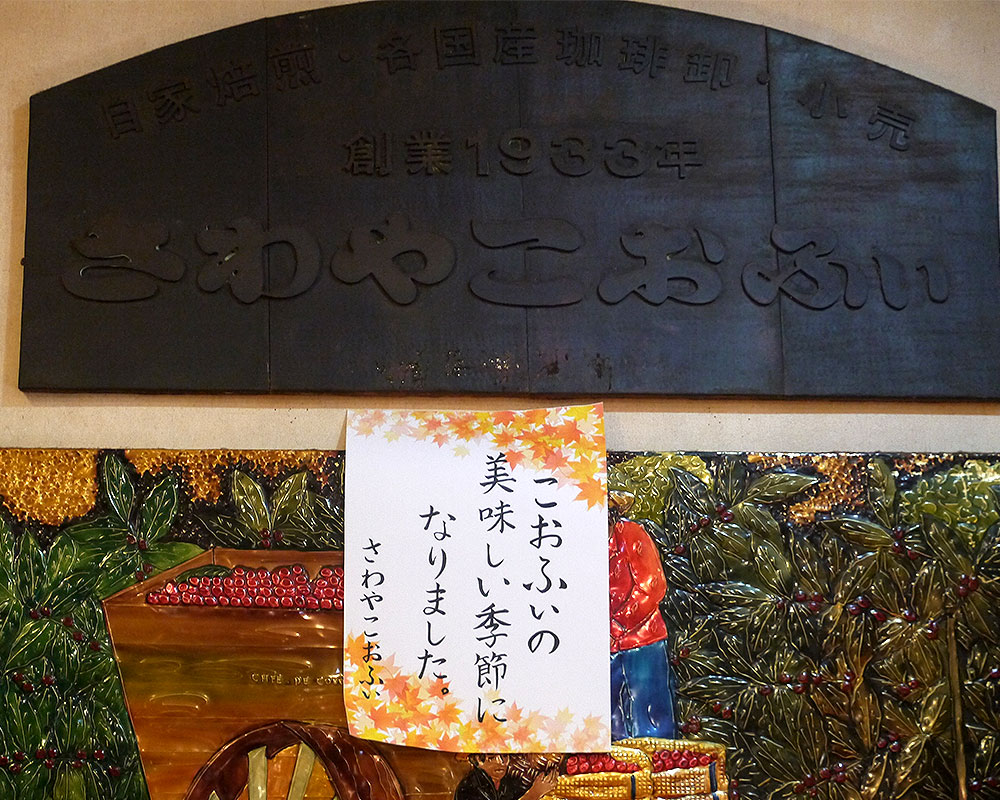 自家焙煎・各国産珈琲卸・小売
創業1933年
さわやこおふぃ
こおふぃの
美味しい季節に
なりました。
さわやこおふぃ